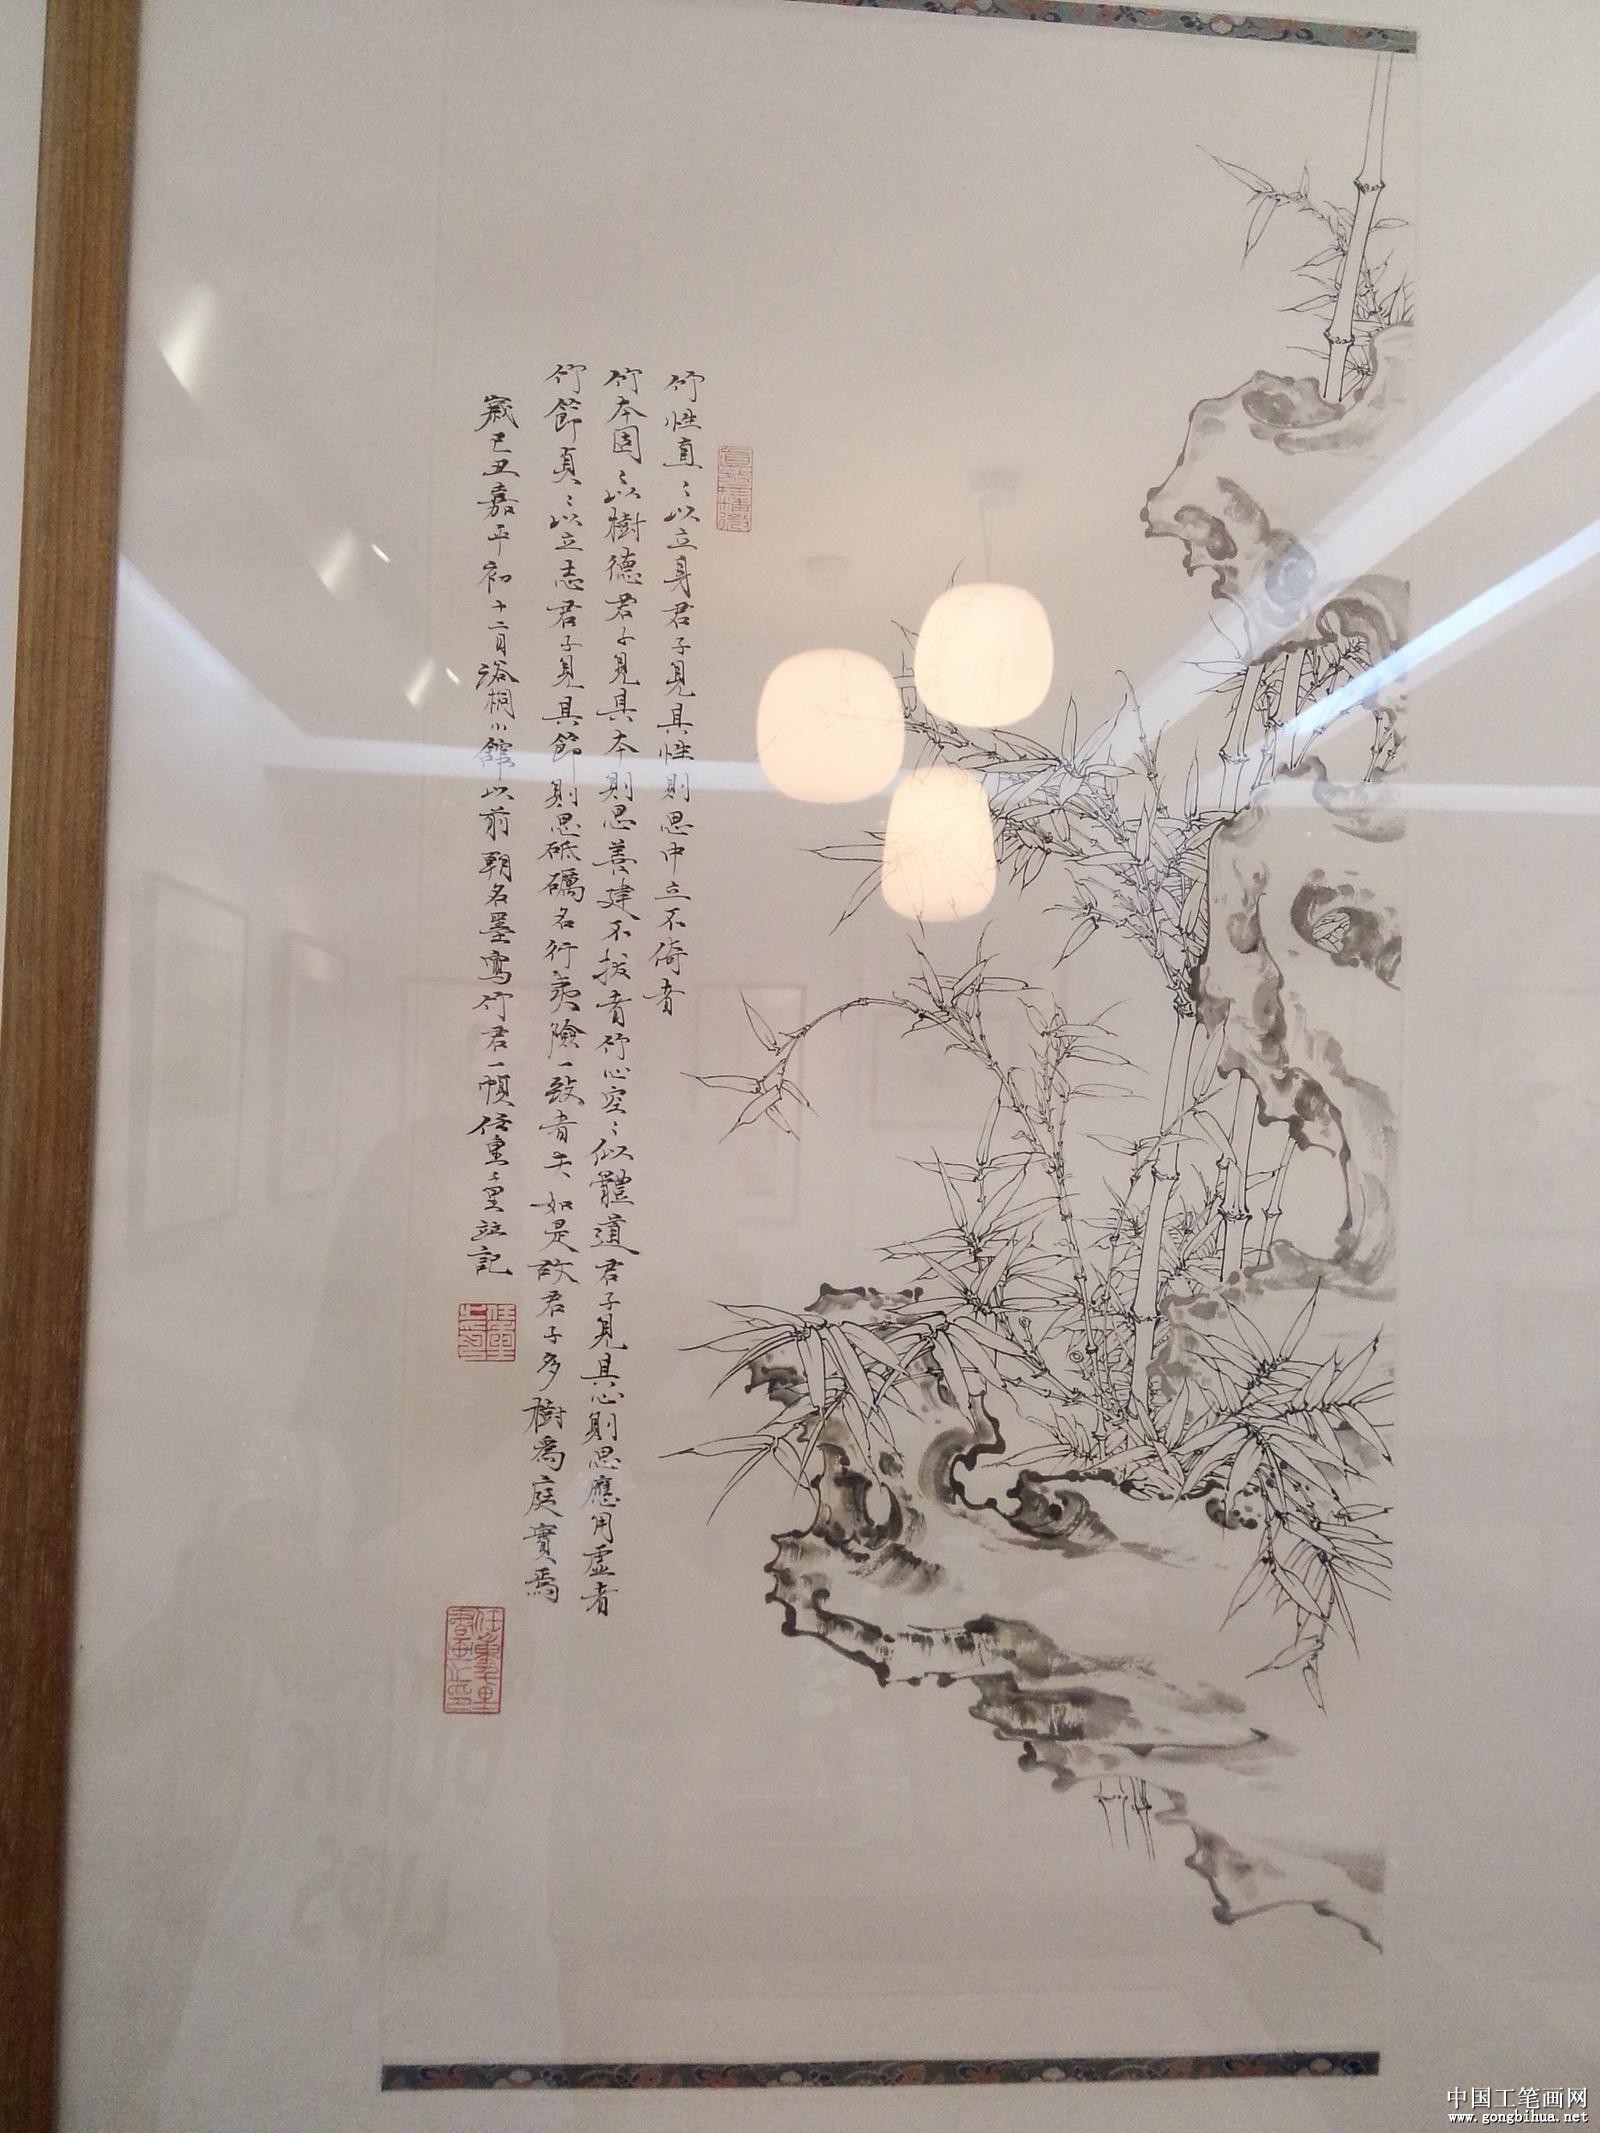 竹性直〻以立身君子見其性則思中立不倚者
竹本固〻以樹德君子見其本則思善建不拔者竹心空〻似體道君子見其心則思應用虛者
竹節貞〻以立志君子見其節則思砥礪名行夷險一致者夫如是故君子多樹為庭實焉
歲己丑嘉平初十二月浴桐小館以前朝名墨寫竹君一幀任重重題記
任重
任重千里書画之印
中国工笔画网
www.gongbihua.net